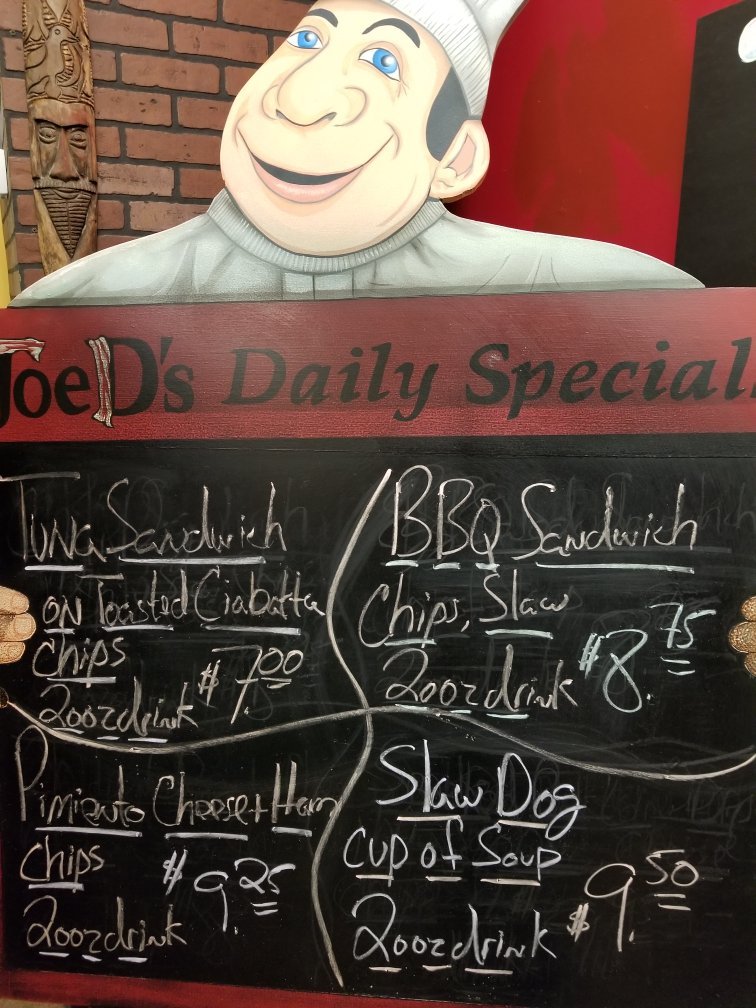 JoeD's Daily Special
Tuna Sandwich
on Toasted Ciabatta
Chips
20oz drink
$7.00
BBQ Sandwich
Chips, Slaw
20oz drink
$8.75
Pimiento Cheese + Ham
Chips
20oz drink
$9.25
Slaw Dog
Cup of Soup
20oz drink
$9.50